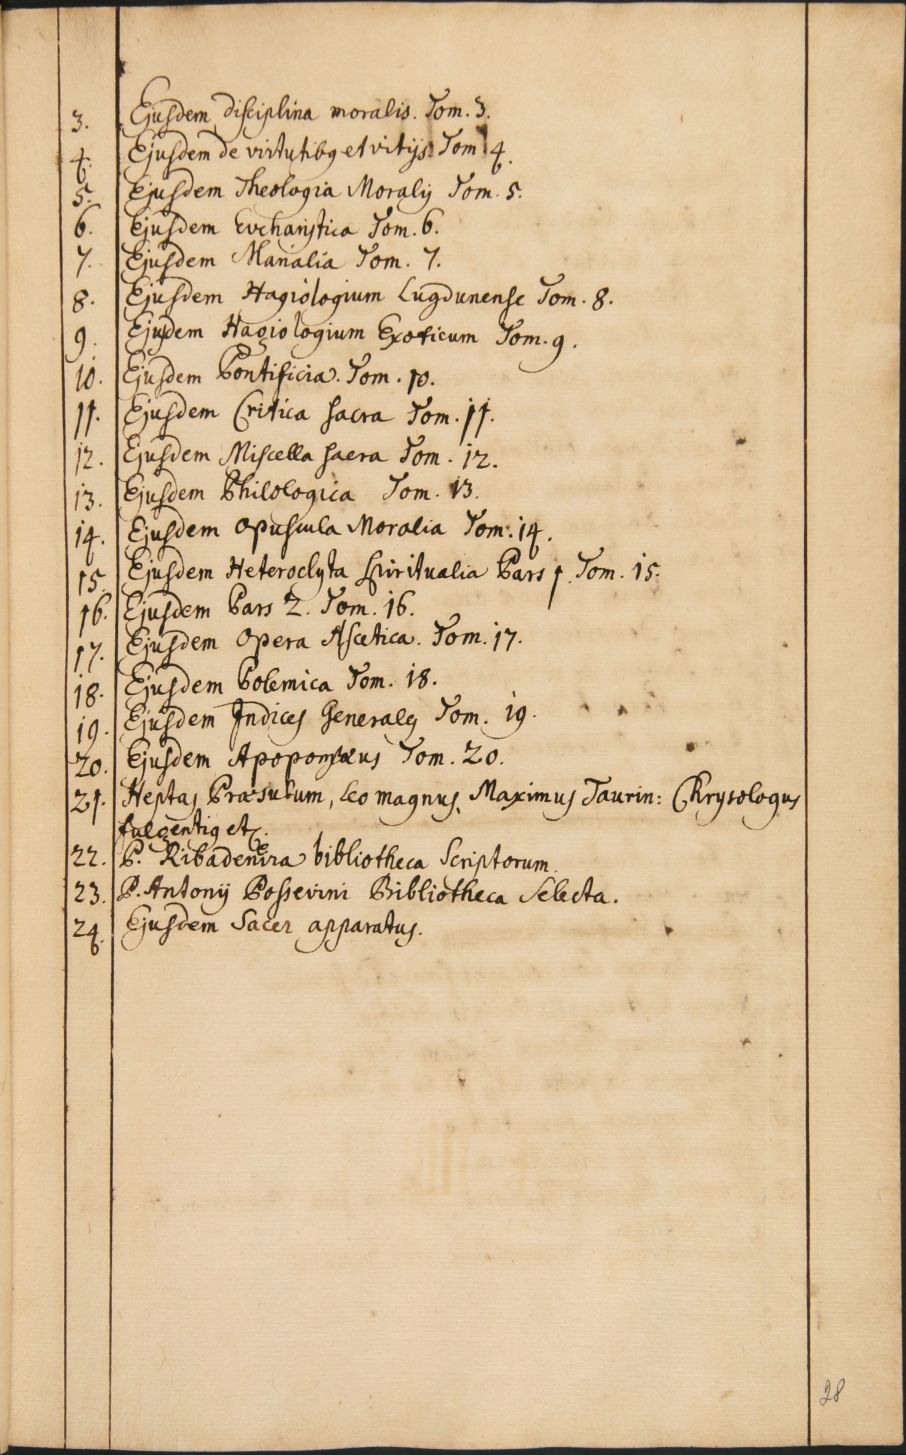 3. Ejusdem disciplina moralis. Tom. 3.
4. Ejusdem de virtutibq et vitijs Tom 4.
5. Ejusdem Theologia Moralis Tom. 5.
6. Ejusdem Evcharistica Tom. 6.
7. Ejusdem Marialia Tom. 7.
8. Ejusdem Hagiologium Lugdunense Tom. 8.
9. Ejusdem Hagiologium Exoticum Tom. 9.
10. Ejusdem Pontificia. Tom. 10.
11. Ejusdem Critica sacra Tom. 11.
12. Ejusdem Miscella sacra Tom. 12.
13. Ejusdem Philologica Tom. 13.
14. Ejusdem opuscula Moralia Tom. 14.
15. Ejusdem Heteroclyta Spiritualia Pars 1. Tom. 15.
16. Ejusdem Pars 2. Tom. 16.
17. Ejusdem Opera Ascetica. Tom. 17.
18. Ejusdem Polemica Tom. 18.
19. Ejusdem Indices Generales Tom. 19.
20. Ejusdem Apopompæus Tom. 20.
21. Heptas Præsulum, Leo magnus, Maximus Taurin: Chrysologus
fulgentiq etc.
22. P. Ribadenira bibliotheca Scriptorum.
23. P. Antonij Possevini Bibliotheca Selecta.
24. Ejusdem Sacer apparatus.
28